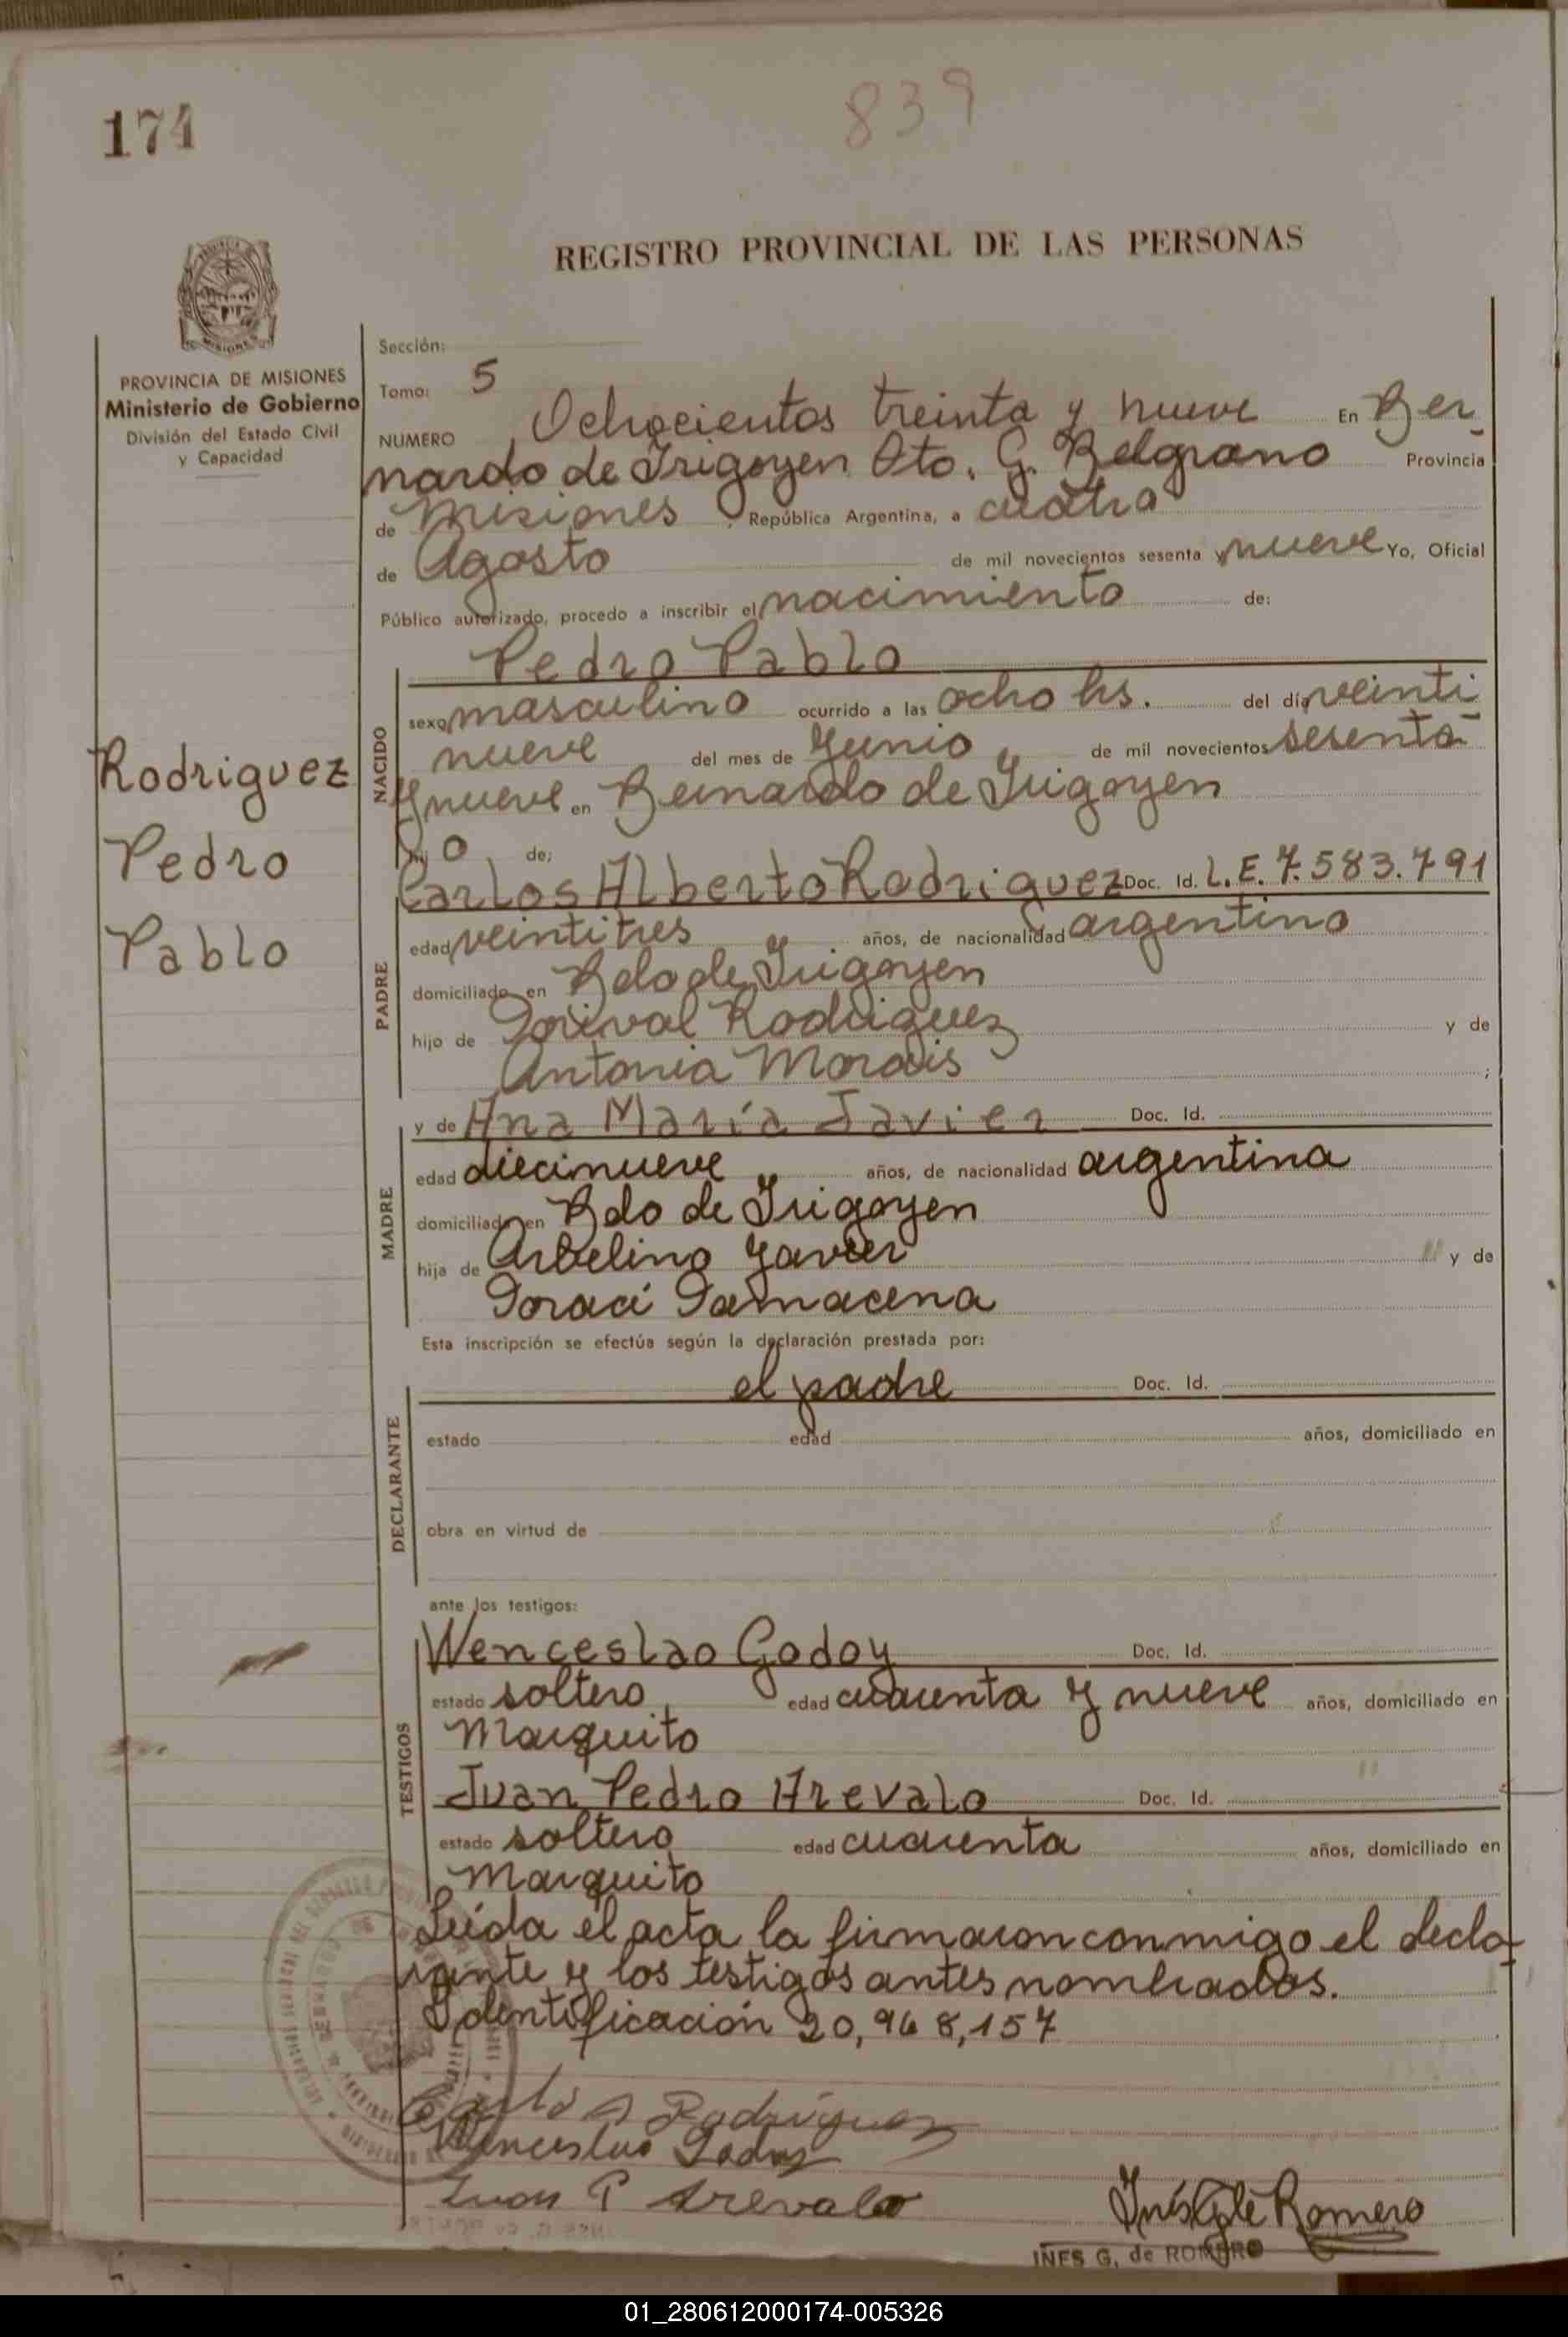 174
839
REGISTRO PROVINCIAL DE LAS PERSONAS
PROVINCIA DE MISIONES
Ministerio de Gobierno
División del Estado Civil
y Capacidad
Sección:
Tomo: 5
NUMERO Ochocientos treinta y nueve En Ber
nardo de Irigoyen Dto. G. Belgrano Provincia
de Misiones, República Argentina, a cuatro
de Agosto de mil novecientos sesenta y nueve Yo, Oficial
Público autorizado, procedo a inscribir el nacimiento de:
Pedro Pablo
NACIDO
sexo masculino ocurrido a las ocho hs. del día veinti
nueve del mes de Junio de mil novecientos sesenta
y nueve en Bernardo de Irigoyen
Rodriguez
Pedro
Pablo
hijo de:
Carlos Alberto Rodriguez Doc. Id. L.E. 7.583.791
PADRE
edad veintitres años, de nacionalidad argentino
domiciliado en Bdo de Irigoyen
hijo de Dorival Rodriguez y de
Antonia Morais ;
y de Ana María Javier Doc. Id.
MADRE
edad diecinueve años, de nacionalidad argentina
domiciliada en Bdo de Irigoyen
hija de Arbelino Javier y de
Doraci Damacena
Esta inscripción se efectúa según la declaración prestada por:
el padre Doc. Id.
DECLARANTE
estado edad años, domiciliado en
obra en virtud de
ante los testigos:
TESTIGOS
Wenceslao Godoy Doc. Id.
estado soltero edad cuarenta y nueve años, domiciliado en
Marquito
Juan Pedro Arevalo Doc. Id.
estado soltero edad cuarenta años, domiciliado en
Marquito
Leída el acta la firmaron conmigo el decla
rante y los testigos antes nombrados.
Identificación 20,968,157
Carlos A Rodriguez
Wenceslao Godoy
Juan P Arevalo
Inés G de Romero
INES G. de ROMERO
01_280612000174-005326